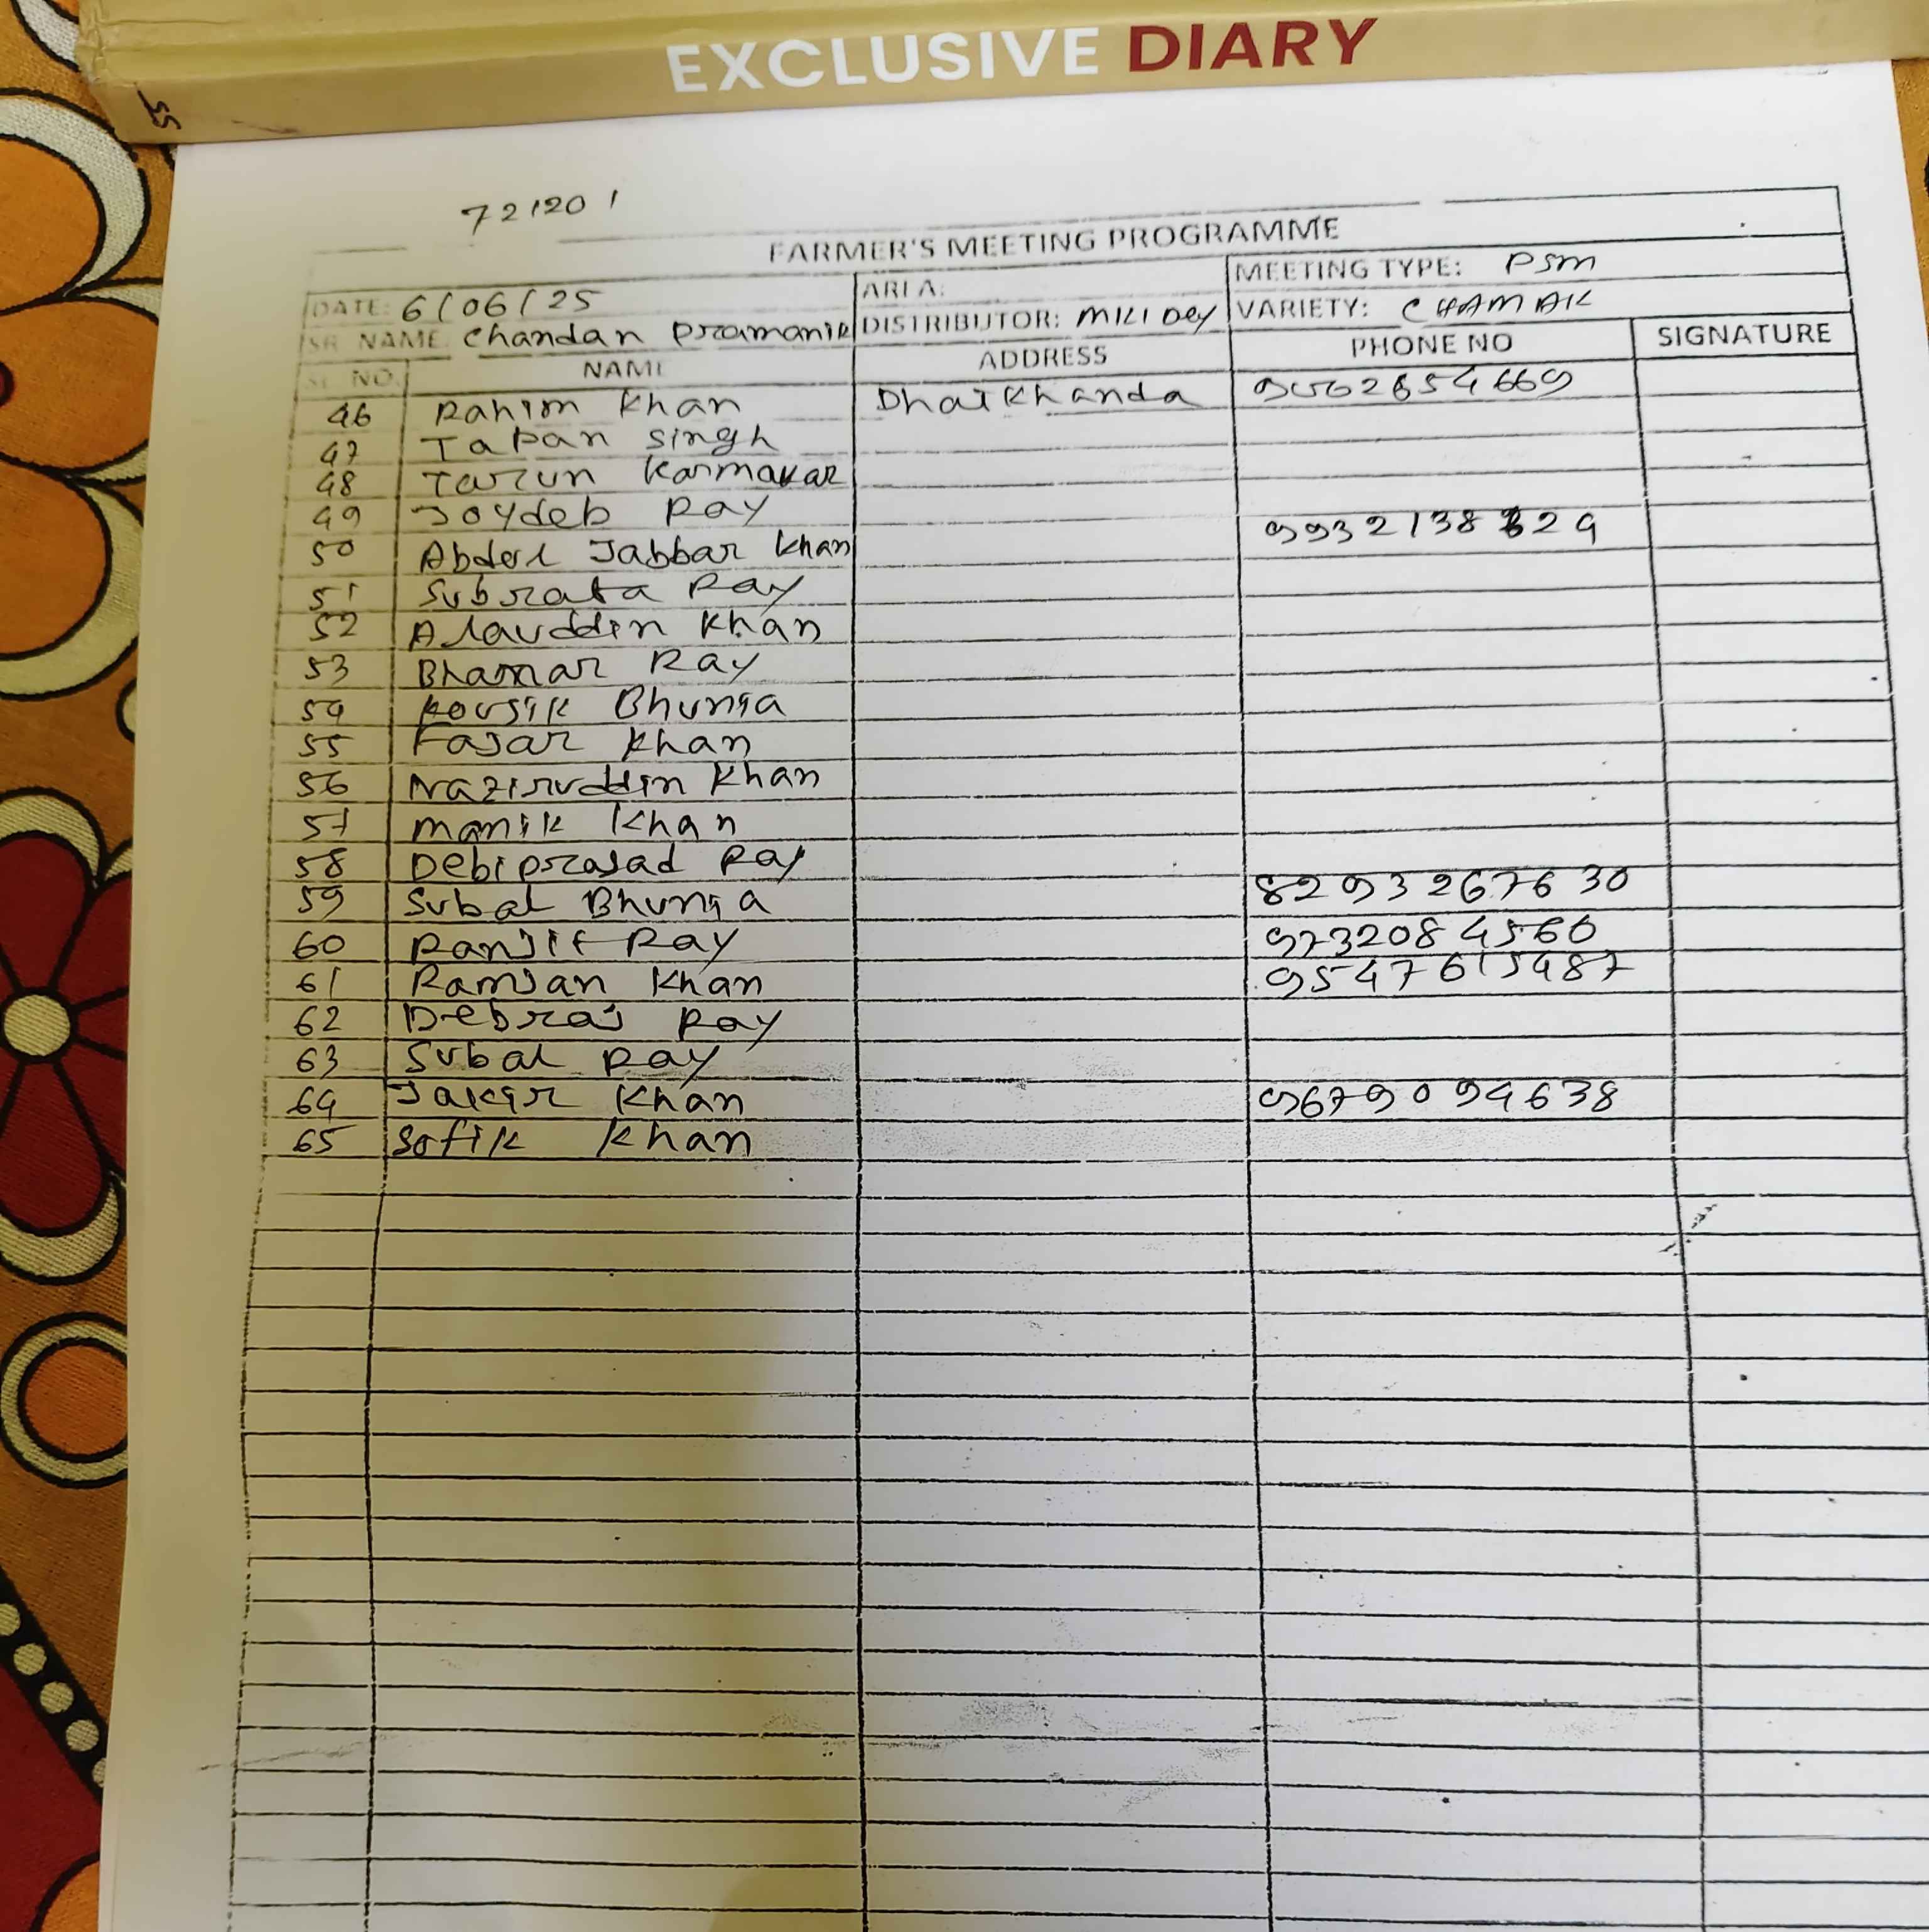 EXCLUSIVE DIARY
55
721201
FARMER'S MEETING PROGRAMME
DATE: 6/06/25 AREA: MEETING TYPE: PSM
SR NAME Chandan Pramanik DISTRIBUTOR: MILI Dey VARIETY: CHAMAK
SL NO. NAME ADDRESS PHONE NO SIGNATURE
46 Rahim Khan Dhaikhanda
47 Tapan Singh
48 Tarun Karmakar
49 Joydeb Ray
50 Abdul Jabbar Khan
51 Subrata Ray
52 Alauddin Khan
53 Bhamar Ray
54 Kousik Bhunia
55 Fajar Khan
56 Naziruddin Khan
57 Manik Khan
58 Debiprasad Ray
59 Subal Bhunia 8293267630
60 Ranjit Ray 9732084560
61 Ramjan Khan 9547615487
62 Debraj Ray
63 Subal Ray
64 Jakir Khan 9679094638
65 Sofik Khan